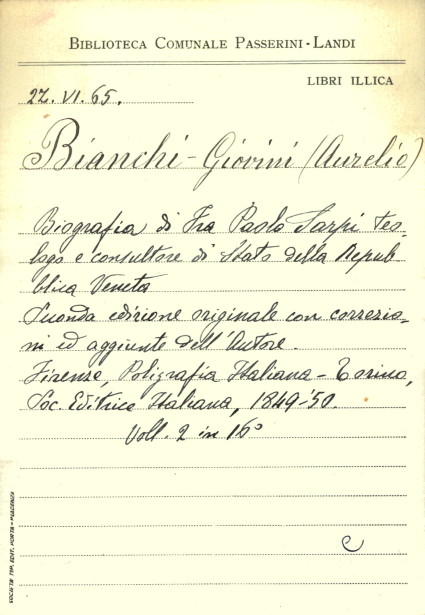 BIBLIOTECA COMUNALE PASSERINI-LANDI
LIBRI ILLICA
22. VI. 65.
Bianchi-Giovini (Aurelio)
Biografia di Fra Paolo Sarpi teo-
logo e consultore di Stato della Repub
blica Veneta
Seconda edizione originale con correzio-
ni ed aggiunte dell'Autore.
Firenze, Poligrafia Italiana - Torino,
Soc. Editrice Italiana, 1849-50.
Voll. 2 in 16°
C
SOCIETÀ TIP. EDIT. PORTA - PIACENZA